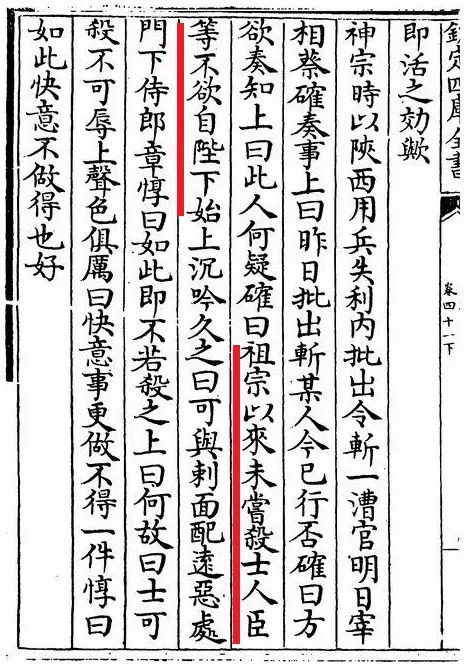 欽定四庫全書
卷四十一下
即活之効歟
神宗時以陝西用兵失利内批出令斬一漕官明日宰
相蔡確奏事上曰昨日批出斬某人今已行否確曰方
欲奏知上曰此人何疑確曰祖宗以來未嘗殺士人臣
等不欲自陛下始上沉吟久之曰可與刺面配逺惡處
門下侍郎章惇曰如此即不若殺之上曰何故曰士可
殺不可辱上聲色俱厲曰快意事更做不得一件惇曰
如此快意不做得也好